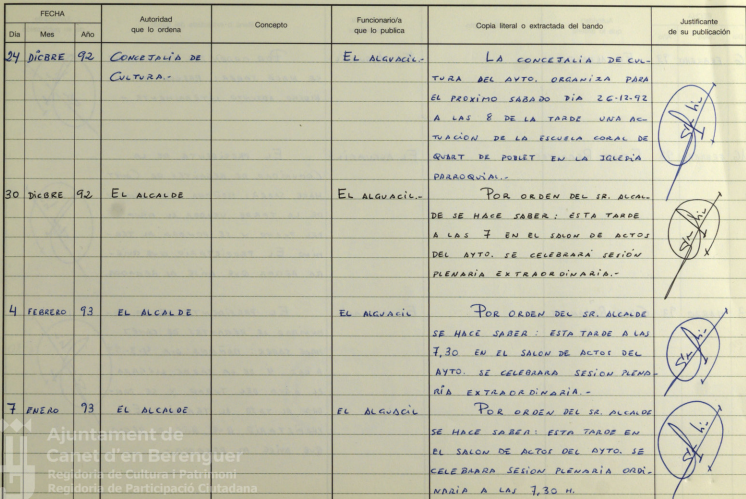 FECHA
Día Mes Año
Autoridad
que lo ordena
Concepto
Funcionario/a
que lo publica
Copia literal o extractada del bando
Justificante
de su publicación
24 DICBRE 92 CONCEJALIA DE EL ALGUACIL.- LA CONCEJALIA DE CUL-
CULTURA.- TURA DEL AYTO. ORGANIZA PARA
EL PROXIMO SABADO DIA 26-12-92
A LAS 8 DE LA TARDE UNA AC-
TUACIÓN DE LA ESCUELA CORAL DE
QUART DE POBLET EN LA IGLESIA
PARROQUIAL.-
30 DICBRE 92 EL ALCALDE EL ALGUACIL.- POR ORDEN DEL SR. ALCAL-
DE SE HACE SABER: ESTA TARDE
A LAS 7 EN EL SALON DE ACTOS
DEL AYTO. SE CELEBRARÁ SESIÓN
PLENARIA EXTRAORDINARIA.-
4 FEBRERO 93 EL ALCALDE EL ALGUACIL POR ORDEN DEL SR. ALCALDE
SE HACE SABER: ESTA TARDE A LAS
7,30 EN EL SALON DE ACTOS DEL
AYTO. SE CELEBRARA SESION PLENA-
RÍA EXTRAORDINARIA.-
7 ENERO 93 EL ALCALDE EL ALGUACIL POR ORDEN DEL SR. ALCALDE
SE HACE SABER: ESTA TARDE EN
EL SALON DE ACTOS DEL AYTO. SE
CELEBRARA SESION PLENARIA ORDI-
NARIA A LAS 7,30 H.
Ajuntament de
Canet d'en Berenguer
Regidoria de Cultura i Patrimoni
Regidoria de Participació Ciutadana